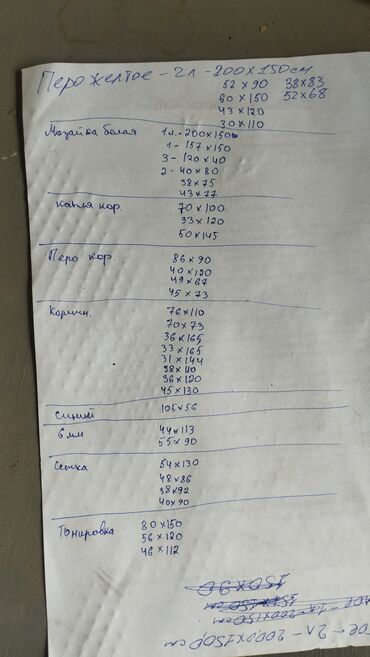 Перо желтое - 2л - 200×150см
52×90 38×83
60×150 52×68
43×120
30×110
Мозайка белая 1л. - 200×150
1 - 157×150
3 - 120×40
2 - 40×80
38×75
43×77
капля кор. 70×100
33×120
50×145
Перо кор. 86×90
40×120
49×67
45×73
Коричн. 76×110
70×73
36×165
33×165
31×144
38×110
36×120
45×130
Синий 105×56
6мм 44×113
55×90
Сетка 54×130
48×86
38×92
40×90
Тонировка 80×150
56×120
46×112
150×90
- 2л - 200×150 см